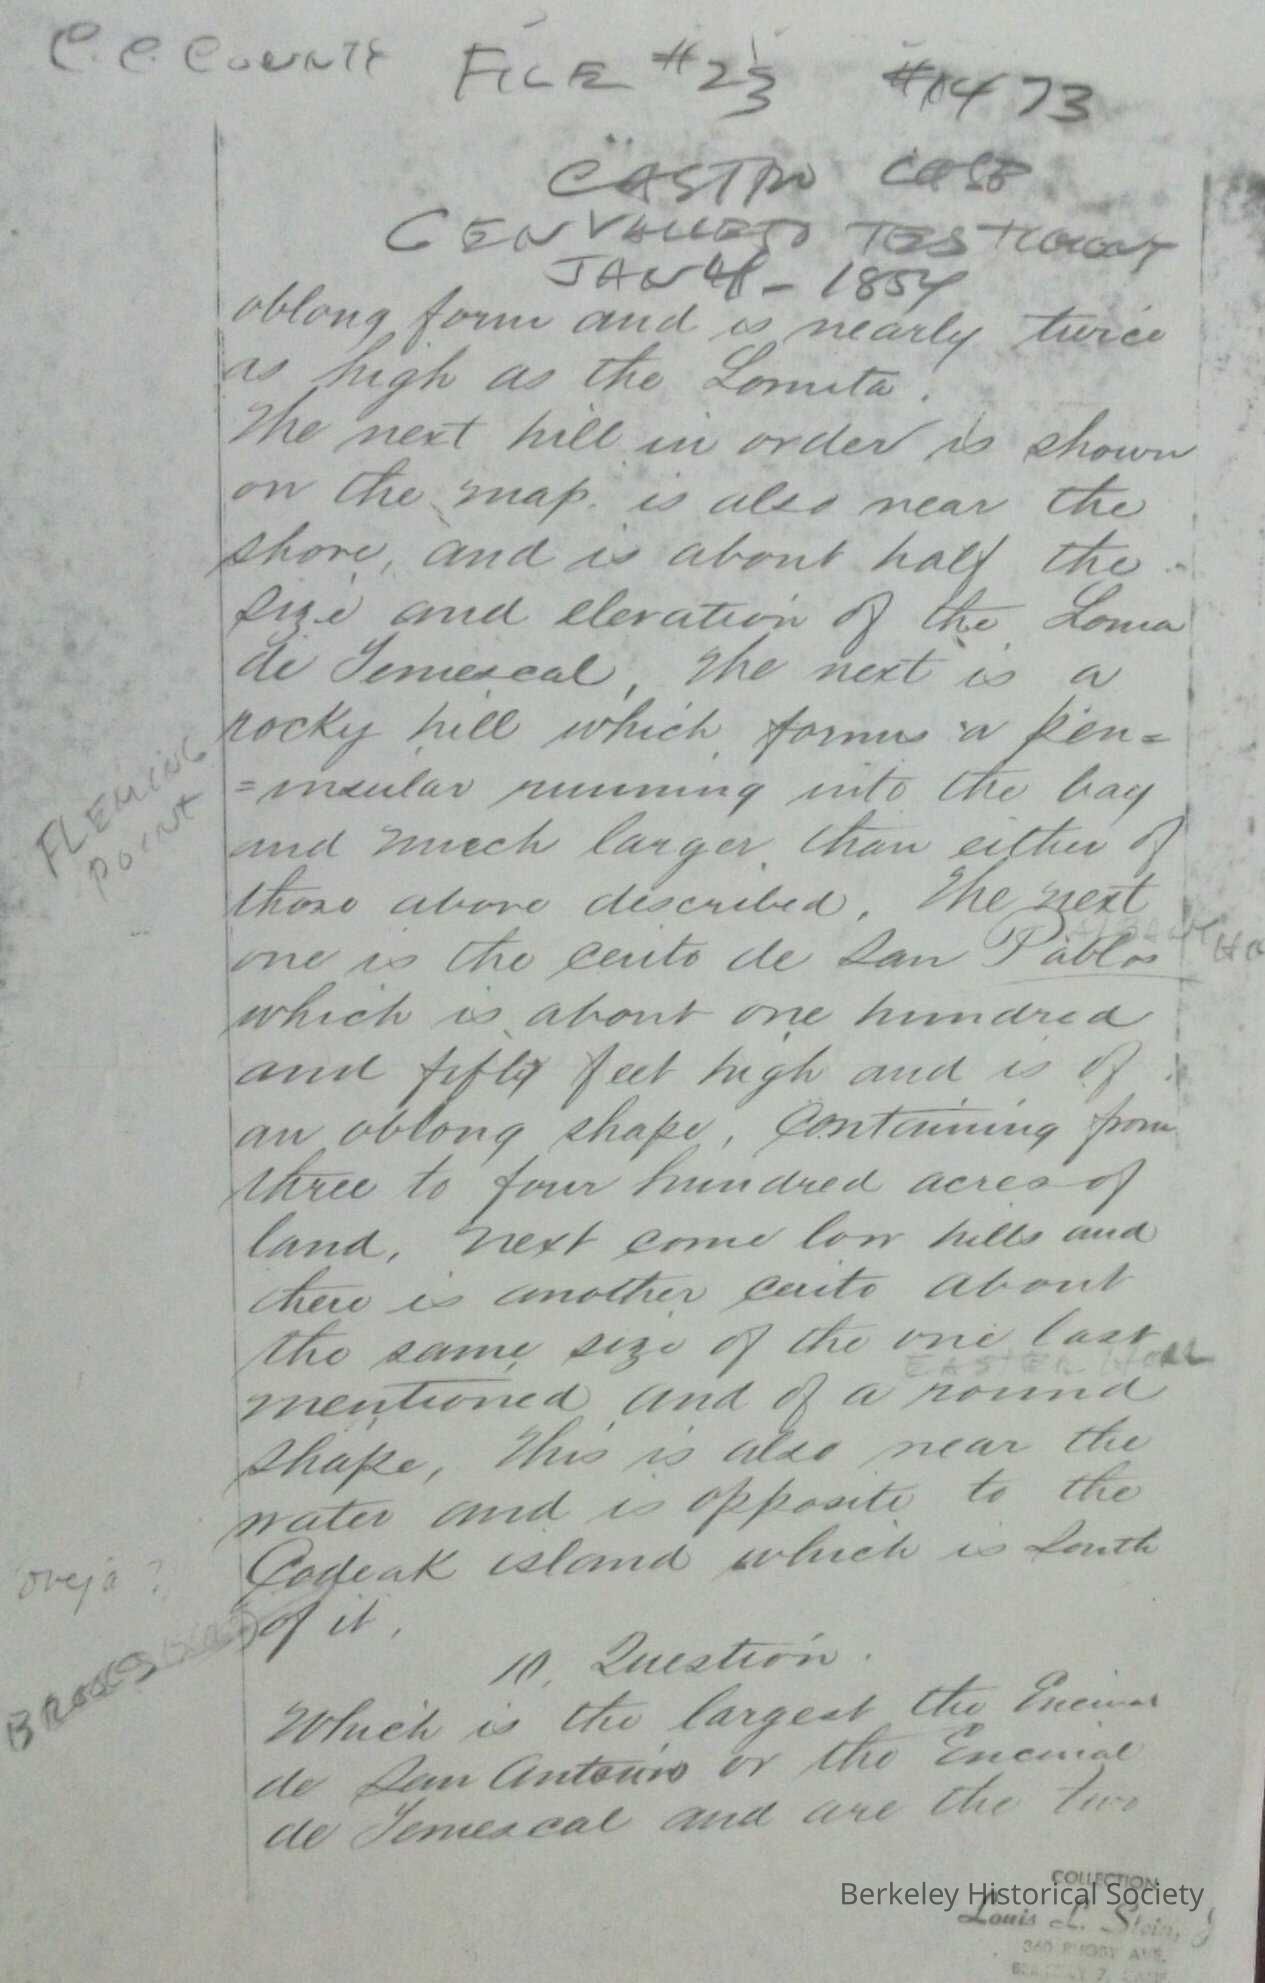 C. C. COUNTY FILE #23 #1473
CASTRO CASE
GEN VALLEJO TESTIMONY
JAN 4 - 1854
oblong form and is nearly twice
as high as the Lomita.
The next hill in order is shown
on the map. is also near the
shore, and is about half the
size and elevation of the Loma
de Temescal, The next is a
rocky hill which forms a pen=
=insular running into the bay
and much larger than either of
those above described, The next
one is the cerito de San Pablos
which is about one hundred
and fifty feet high and is of
an oblong shape, Containing from
three to four hundred acres of
land, next come low hills and
there is another cerito about
the same size of the one last
mentioned and of a round
shape, This is also near the
water and is opposite to the
Codeak island which is South
of it,
10, Question.
Which is the largest the Encinal
de San Antonio or the Encinal
de Temescal and are the two
FLEMING
POINT
ALBANY
EASTER HILL
oveja?
BROOKS
Berkeley Historical Society
COLLECTION
Louis L. Stein, J
360 RUGBY AVE.